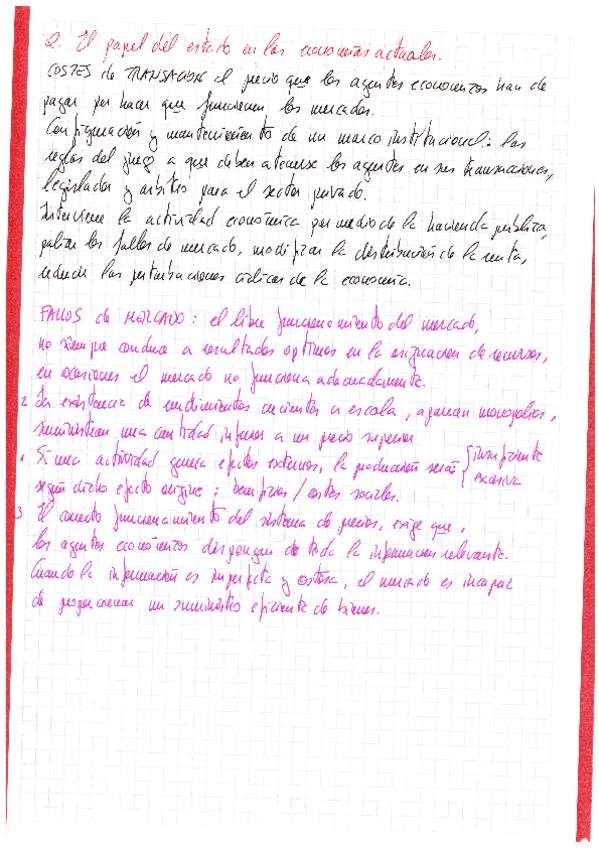 2. El papel del estado en las economías actuales.
COSTES de TRANSACCIÓN el precio que los agentes económicos han de
pagar por hacer que funcionen los mercados.
Configuración y mantenimiento de un marco institucional: las
reglas del juego a que deben atenerse los agentes en sus transacciones,
legislador y árbitro para el sector privado.
Interviene la actividad económica por medio de la hacienda pública,
paliar los fallos de mercado, modificar la distribución de la renta,
reducir las perturbaciones cíclicas de la economía.
FALLOS de MERCADO: el libre funcionamiento del mercado,
no siempre conduce a resultados óptimos en la asignación de recursos,
en ocasiones el mercado no funciona adecuadamente.
2 La existencia de rendimientos crecientes a escala, aparecen monopolios,
suministran una cantidad inferior a un precio superior
1 Si una actividad genera efectos externos, la producción será { insuficiente
excesiva
según dicho efecto origine: beneficios / costes sociales.
3 El correcto funcionamiento del sistema de precios, exige que,
los agentes económicos dispongan de toda la información relevante.
Cuando la información es imperfecta y costosa, el mercado es incapaz
de proporcionar un suministro eficiente de bienes.